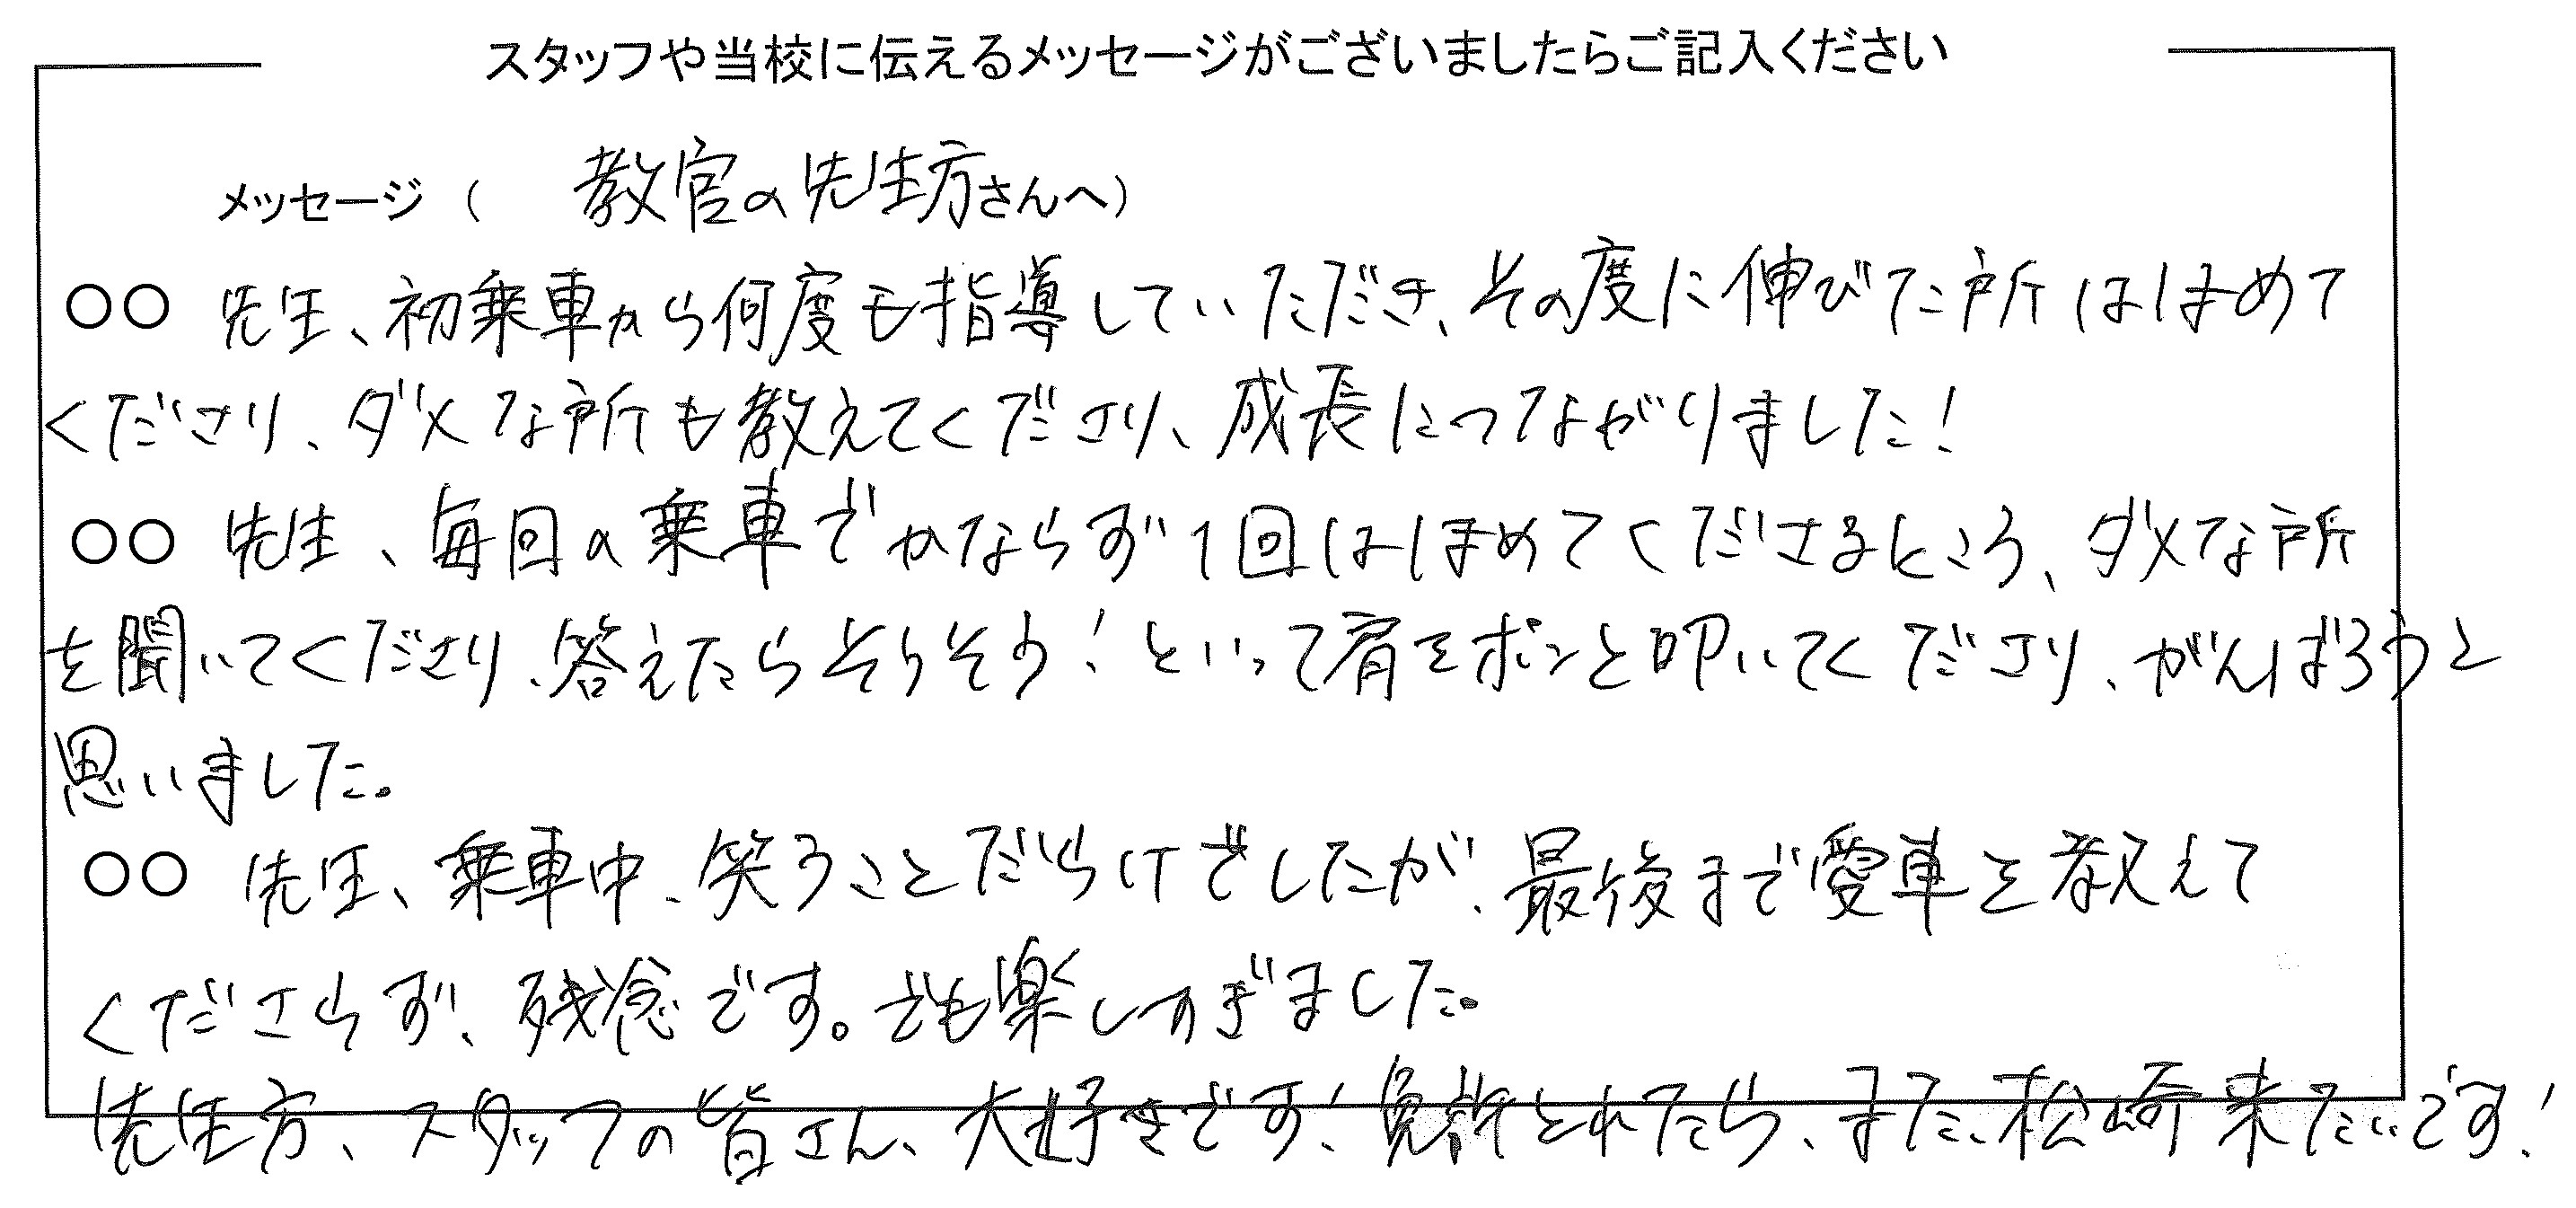 スタッフや当校に伝えるメッセージがございましたらご記入ください
メッセージ（　教官の先生方さんへ）
○○ 先生、初乗車から何度も指導していただき、その度に伸びた所はほめて
くださり、ダメな所も教えてくださり、成長につながりました!
○○ 先生、毎回の乗車でかならず1回はほめてくださるところ、ダメな所
を聞いてくださり、答えたらそうそう!といって肩をポンと叩いてくださり、がんばろうと
思いました。
○○ 先生、乗車中、笑うことだらけでしたが、最後まで愛車を教えて
くださらず、残念です。でも楽しすぎました。
先生方、スタッフの皆さん、大好きです!免許とれたら、また、松崎来たいです!